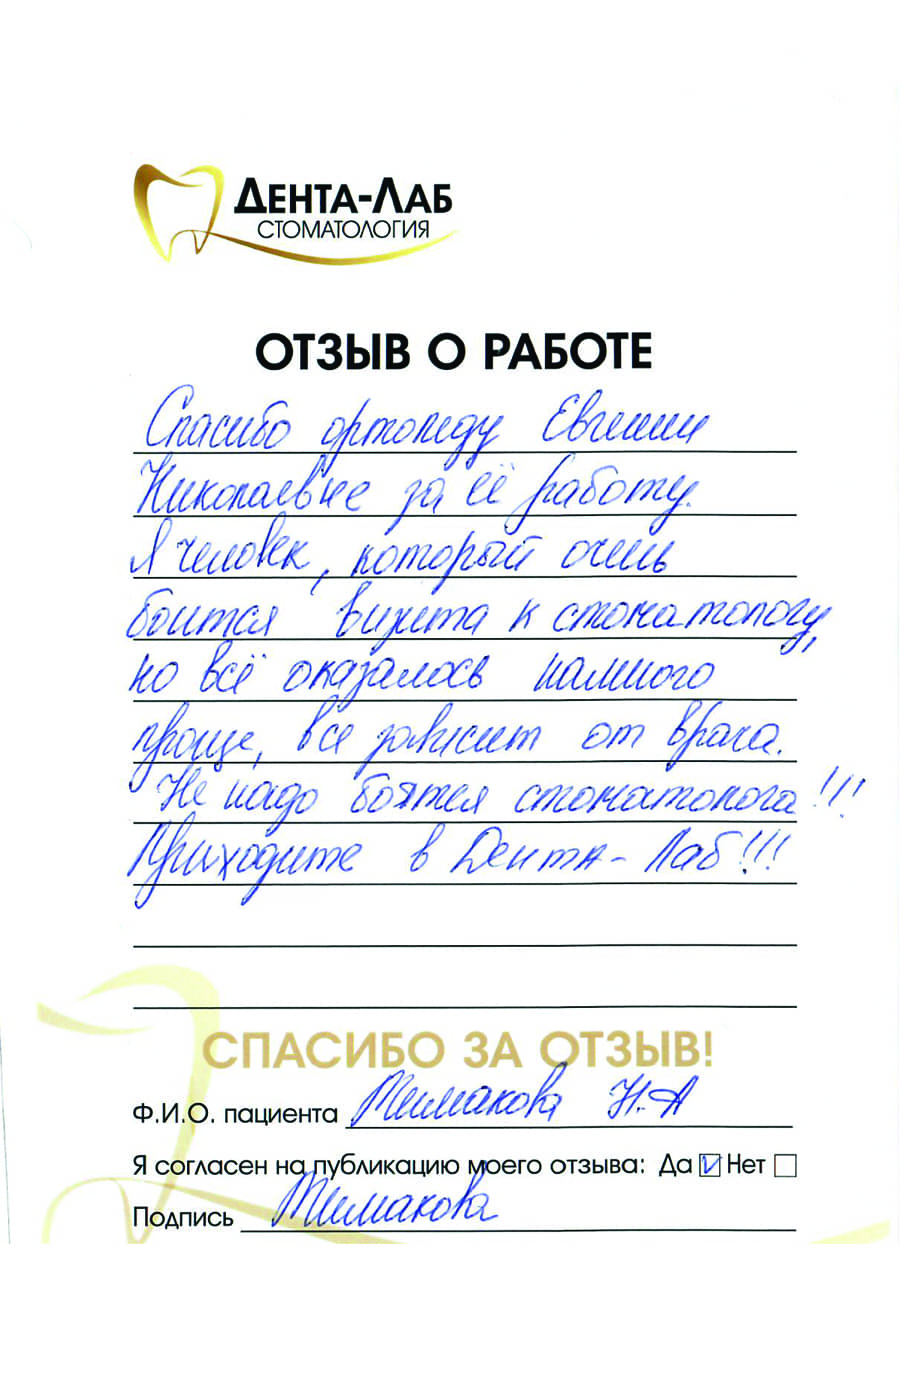 ДЕНТА-ЛАБ
СТОМАТОЛОГИЯ
ОТЗЫВ О РАБОТЕ
Спасибо ортопеду Евгении
Николаевне за её работу.
Я человек, который очень
боится визита к стоматологу,
но всё оказалось намного
проще, все зависит от врача.
Не надо боятся стоматолога!!!
Приходите в Дента-Лаб!!!
СПАСИБО ЗА ОТЗЫВ!
Ф.И.О. пациента Тимакова Н.А
Я согласен на публикацию моего отзыва: Да Нет
Подпись Тимакова